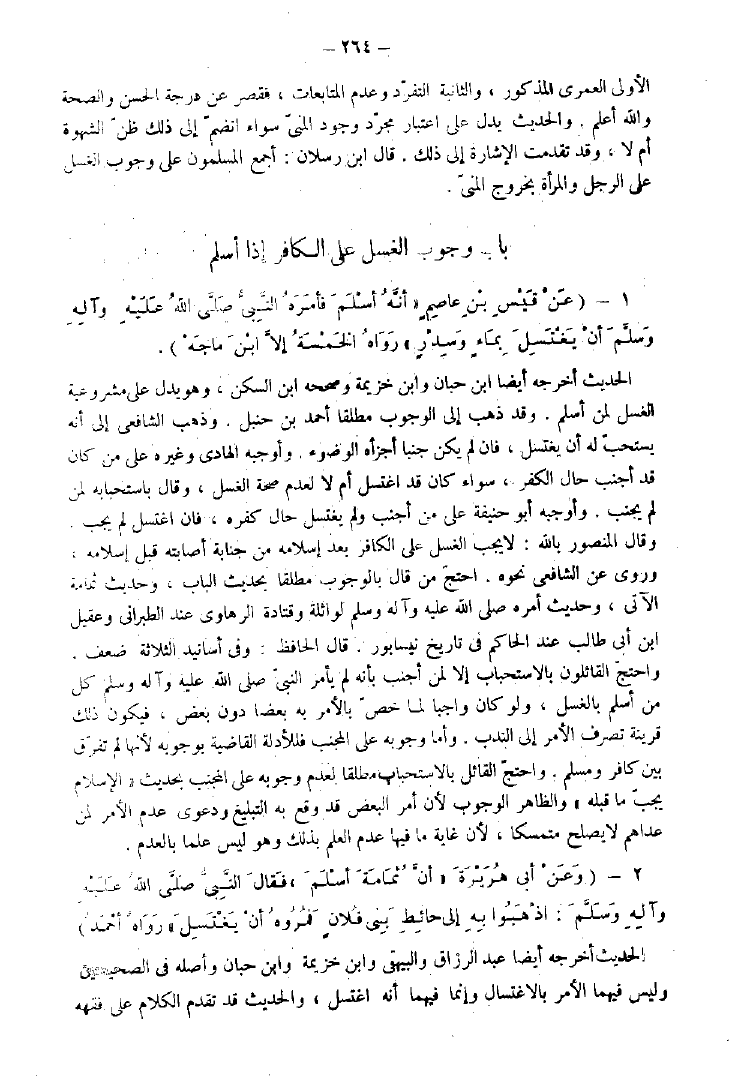 – ٢٦٤ –
الأولى العمرى المذكور ، والثانية التفرّد وعدم المتابعات ، فقصر عن درجة الحسن والصحة
والله أعلم . والحديث يدل على اعتبار مجرّد وجود المنىّ سواء انضمّ إلى ذلك ظنّ الشهوة
أم لا ، وقد تقدمت الإشارة إلى ذلك . قال ابن رسلان : أجمع المسلمون على وجوب الغسل
على الرجل والمرأة بخروج المنىّ .
باب وجوب الغسل على الكافر إذا أسلم
١ – ( عَنْ قَيْسِ بْنِ عاصِمٍ « أنَّهُ أسْلَمَ فأمَرَهُ النَّبِيُّ صَلَّى اللهُ عَلَيْهِ وآلِهِ
وَسَلَّمَ أنْ يَغْتَسِلَ بِمَاءٍ وَسِدْرٍ » رَوَاهُ الخَمْسَةُ إلاَّ ابْنَ ماجَهْ ) .
الحديث أخرجه أيضا ابن حبان وابن خزيمة وصححه ابن السكن ، وهو يدل على مشروعية
الغسل لمن أسلم . وقد ذهب إلى الوجوب مطلقا أحمد بن حنبل . وذهب الشافعى إلى أنه
يستحبّ له أن يغتسل ، فان لم يكن جنبا أجزأه الوضوء . وأوجبه الهادى وغيره على من كان
قد أجنب حال الكفر ، سواء كان قد اغتسل أم لا لعدم صحة الغسل ، وقال باستحبابه لمن
لم يجنب . وأوجبه أبو حنيفة على من أجنب ولم يغتسل حال كفره ، فان اغتسل لم يجب .
وقال المنصور بالله : لايجب الغسل على الكافر بعد إسلامه من جنابة أصابته قبل إسلامه ،
وروى عن الشافعى نحوه . احتجّ من قال بالوجوب مطلقا بحديث الباب ، وحديث ثمامة
الآتى ، وحديث أمره صلى الله عليه وآله وسلم لواثلة وقتادة الرهاوى عند الطبرانى وعقيل
ابن أبى طالب عند الحاكم فى تاريخ نيسابور . قال الحافظ : وفى أسانيد الثلاثة ضعف .
واحتجّ القائلون بالاستحباب إلا لمن أجنب بأنه لم يأمر النبىّ صلى الله عليه وآله وسلم كل
من أسلم بالغسل ، ولو كان واجبا لما خصّ بالأمر به بعضا دون بعض ، فيكون ذلك
قرينة تصرف الأمر إلى الندب . وأما وجوبه على المجنب فللأدلة القاضية بوجوبه لأنها لم تفرّق
بين كافر ومسلم . واحتجّ القائل بالاستحباب مطلقا لعدم وجوبه على المجنب بحديث « الإسلام
يجبّ ما قبله » والظاهر الوجوب لأن أمر البعض قد وقع به التبليغ ودعوى عدم الأمر لمن
عداهم لايصلح متمسكا ، لأن غاية ما فيها عدم العلم بذلك وهو ليس علما بالعدم .
٢ – ( وَعَنْ أبى هُرَيْرَةَ « أنَّ ثُمَامَةَ أسْلَمَ ، فَقالَ النَّبِيُّ صَلَّى اللهُ عَلَيْهِ
وآلِهِ وَسَلَّمَ : اذْهَبُوا بِهِ إلى حائِطِ بَنِى فُلانٍ فَمُرُوهُ أنْ يَغْتَسِلَ » رَوَاهُ أحْمَدُ )
الحديث أخرجه أيضا عبد الرزاق والبيهقى وابن خزيمة وابن حبان وأصله فى الصحيحين
وليس فيهما الأمر بالاغتسال وإنما فيهما أنه اغتسل ، والحديث قد تقدم الكلام على فقهه